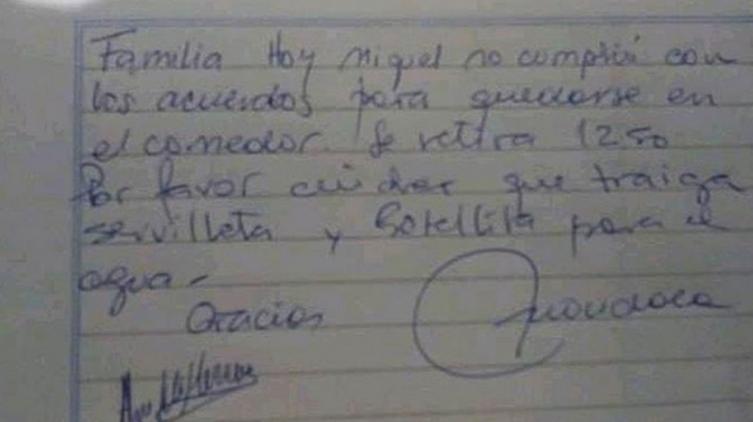 Familia Hoy Miguel no cumplió con
los acuerdos para quedarse en
el comedor. Se retira 1250
Por favor cuidar que traiga
servilleta y botellita para el
agua-
Gracias